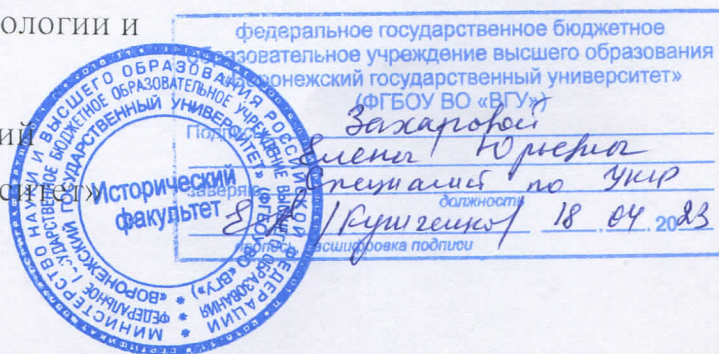 ологии и
ий
ситет»
федеральное государственное бюджетное
образовательное учреждение высшего образования
«Воронежский государственный университет»
(ФГБОУ ВО «ВГУ»)
Подпись Захаровой
Елены Юрьевны
заверяю Специалист по
должность
18.04.2023
подпись, расшифровка подписи
МИНИСТЕРСТВО НАУКИ И ВЫСШЕГО ОБРАЗОВАНИЯ РОССИЙСКОЙ ФЕДЕРАЦИИ
ФЕДЕРАЛЬНОЕ ГОСУДАРСТВЕННОЕ БЮДЖЕТНОЕ ОБРАЗОВАТЕЛЬНОЕ УЧРЕЖДЕНИЕ ВЫСШЕГО ОБРАЗОВАНИЯ
«ВОРОНЕЖСКИЙ ГОСУДАРСТВЕННЫЙ УНИВЕРСИТЕТ» (ФГБОУ ВО «ВГУ»)
Исторический
факультет